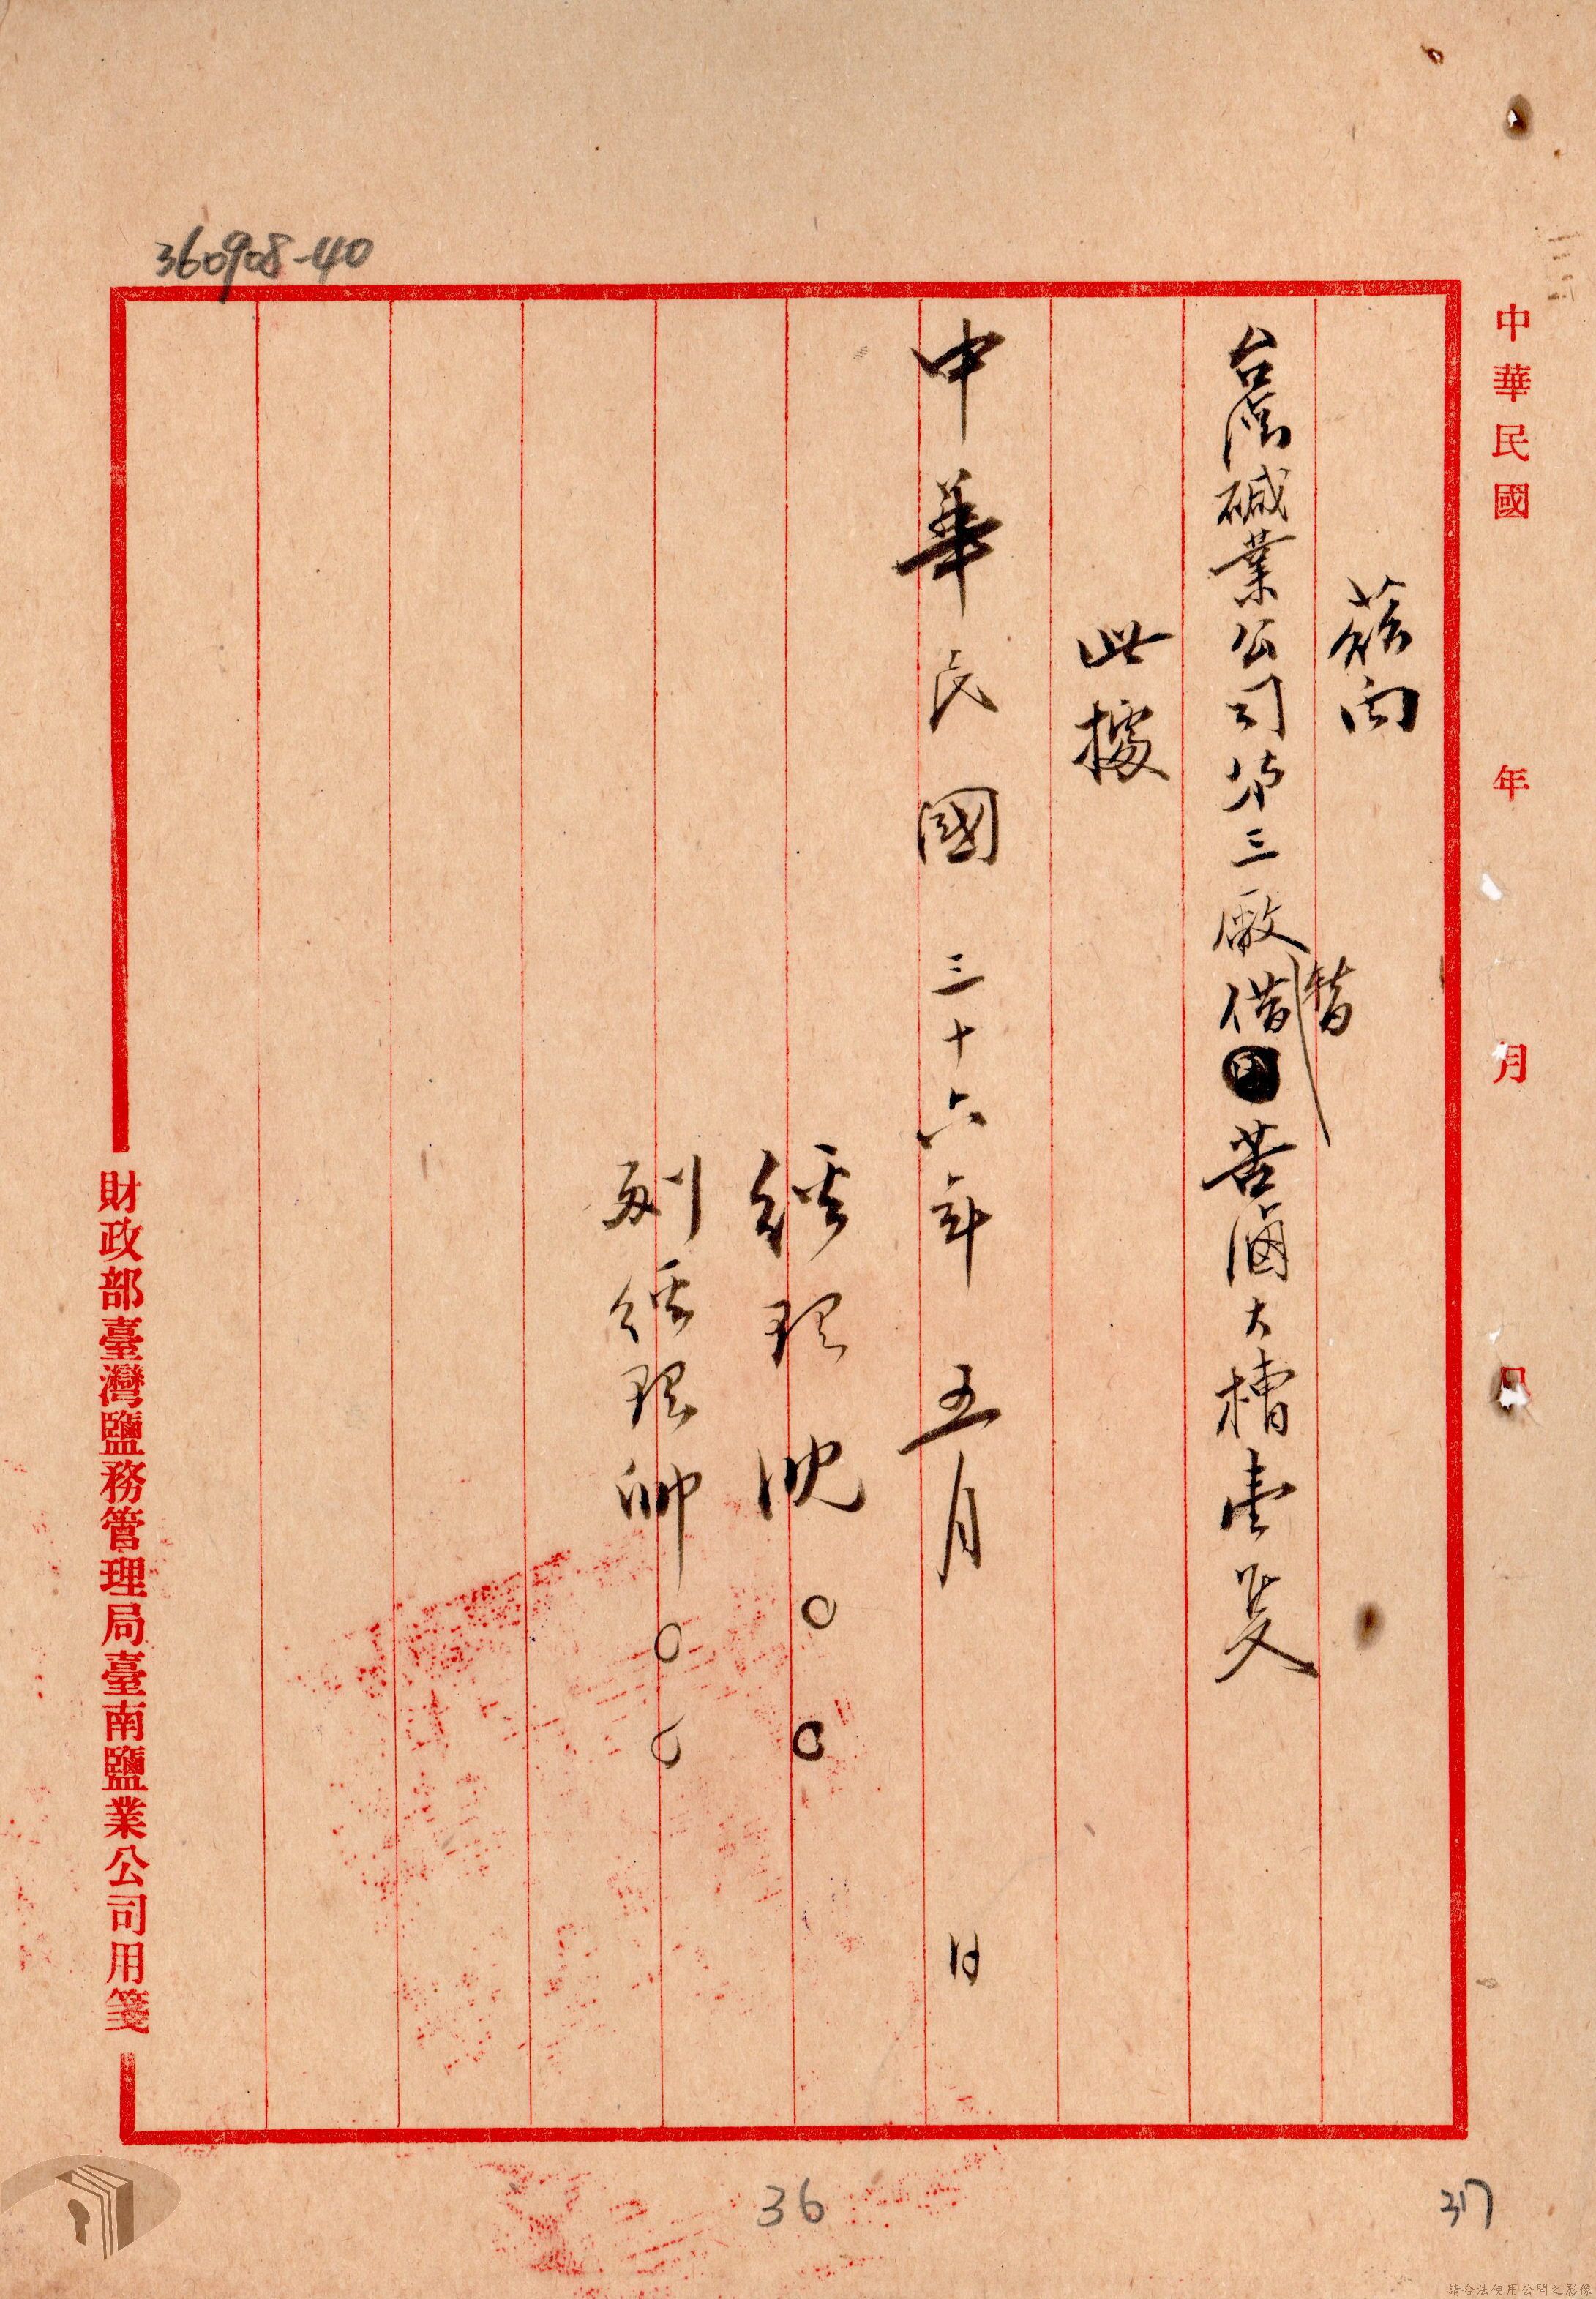 中華民國 年 月 日
茲向
台灣碱業公司第三廠暫借苦滷大槽壹隻
此據
中華民國三十六年五月 日
經理沈○○
副經理帥○○
財政部臺灣鹽務管理局臺南鹽業公司用箋
360908-40
36
317
請合法使用公開之影像